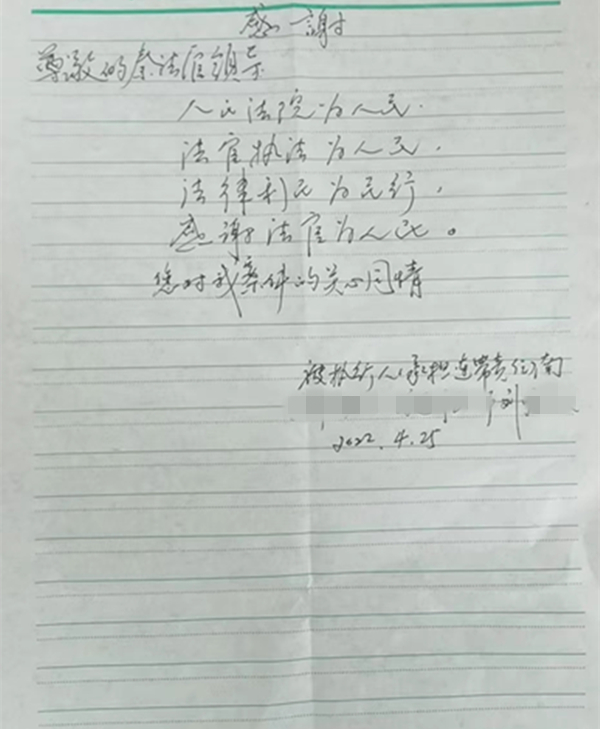 感謝
尊敬的秦法官领导
人民法院为人民.
法官执法为人民.
法律利民为民行.
感谢法官为人民。
您对我案件的关心同情
被执行人(承担连带责任)南
刘
2022.4.25